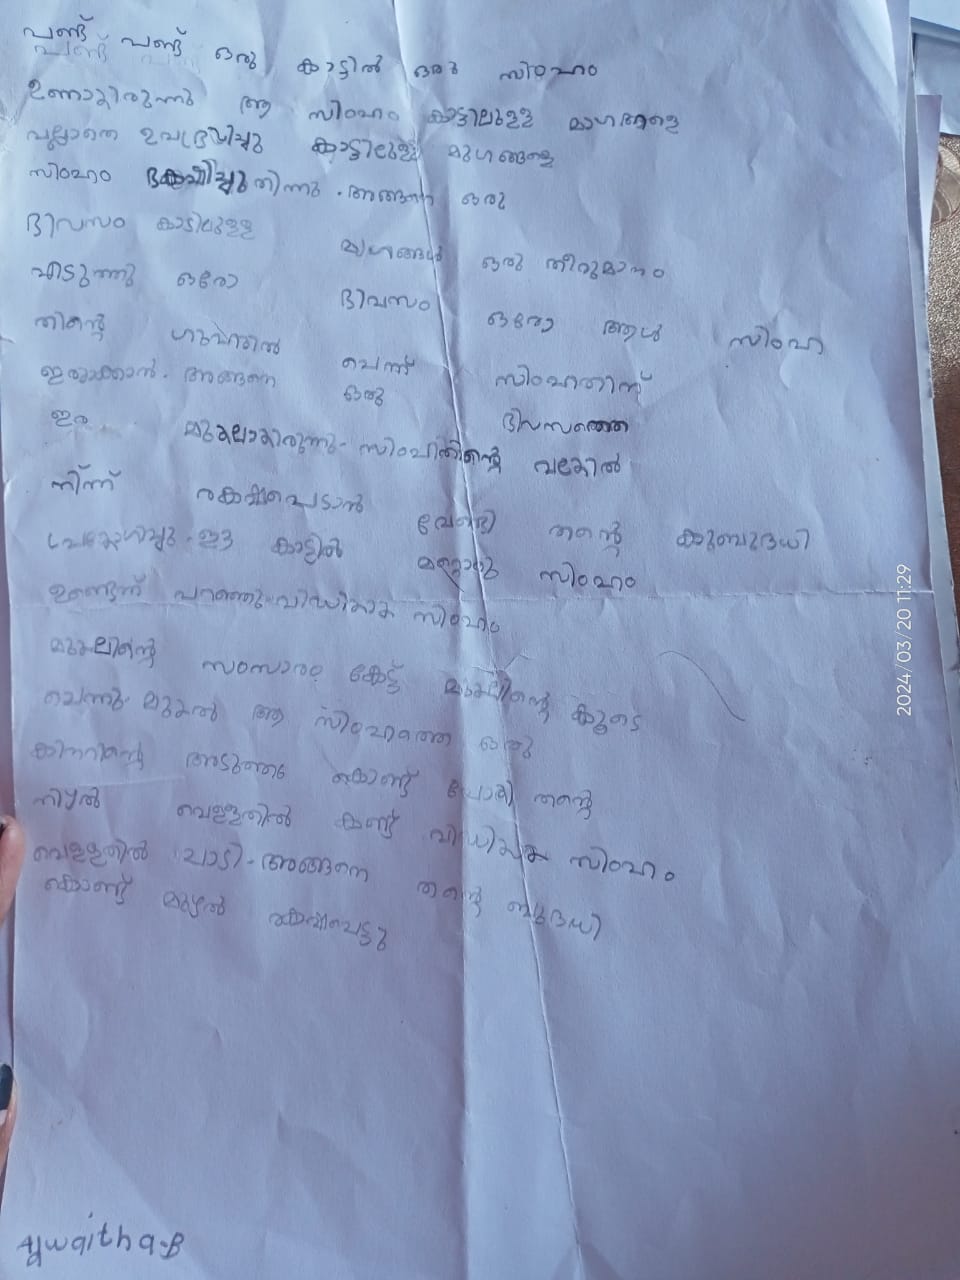 പണ്ട് പണ്ട് ഒരു കാട്ടിൽ ഒരു സിംഹം
ഉണ്ടായിരുന്നു ആ സിംഹം കാട്ടിലുള്ള
വല്ലാതെ ഉപദ്രവിച്ചു കാട്ടിലുള്ള മൃഗങ്ങളെ
സിംഹം ഭക്ഷിച്ചു തിന്നു. അങ്ങനെ ഒരു
ദിവസം കാടിലുള്ള മൃഗങ്ങൾ ഒരു തീരുമാനം
എടുത്തു ഒരോ ദിവസം ഒരോ ആൾ സിംഹ
തിന്റെ ഗുഹതിൽ ചെന്ന് സിംഹതിന്
ഇരയാക്കാൻ. അങ്ങനെ ഒരു ദിവസത്തെ
ഇര മുയലായിരുന്നു. സിംഹതിന്റെ വയ്യിൽ
നിന്ന് രക്ഷപെടാൻ വേണ്ടി തന്റെ കുബുദ്ധി
പ്രയോഗിച്ചു. ഈ കാട്ടിൽ മറ്റൊരു സിംഹം
ഉണ്ടെന്ന് പറഞ്ഞു. വിഡ്ഢിയായ സിംഹം
മുയലിന്റെ സംസാരം കേട്ട് മുയലിന്റെ കൂടെ
ചെന്നു. മുയൽ ആ സിംഹത്തെ ഒരു
കിണറിന്റെ അടുത്തേക് കൊണ്ട് പോയി തന്റെ
നിഴൽ വെള്ളതിൽ കണ്ട് വിഡ്ഢിയായ സിംഹം
വെള്ളതിൽ ചാടി. അങ്ങനെ തന്റെ ബുദ്ധി
കൊണ്ട് മുയൽ രക്ഷപെട്ടു
Adwaitha.B
2024/03/20 11:29